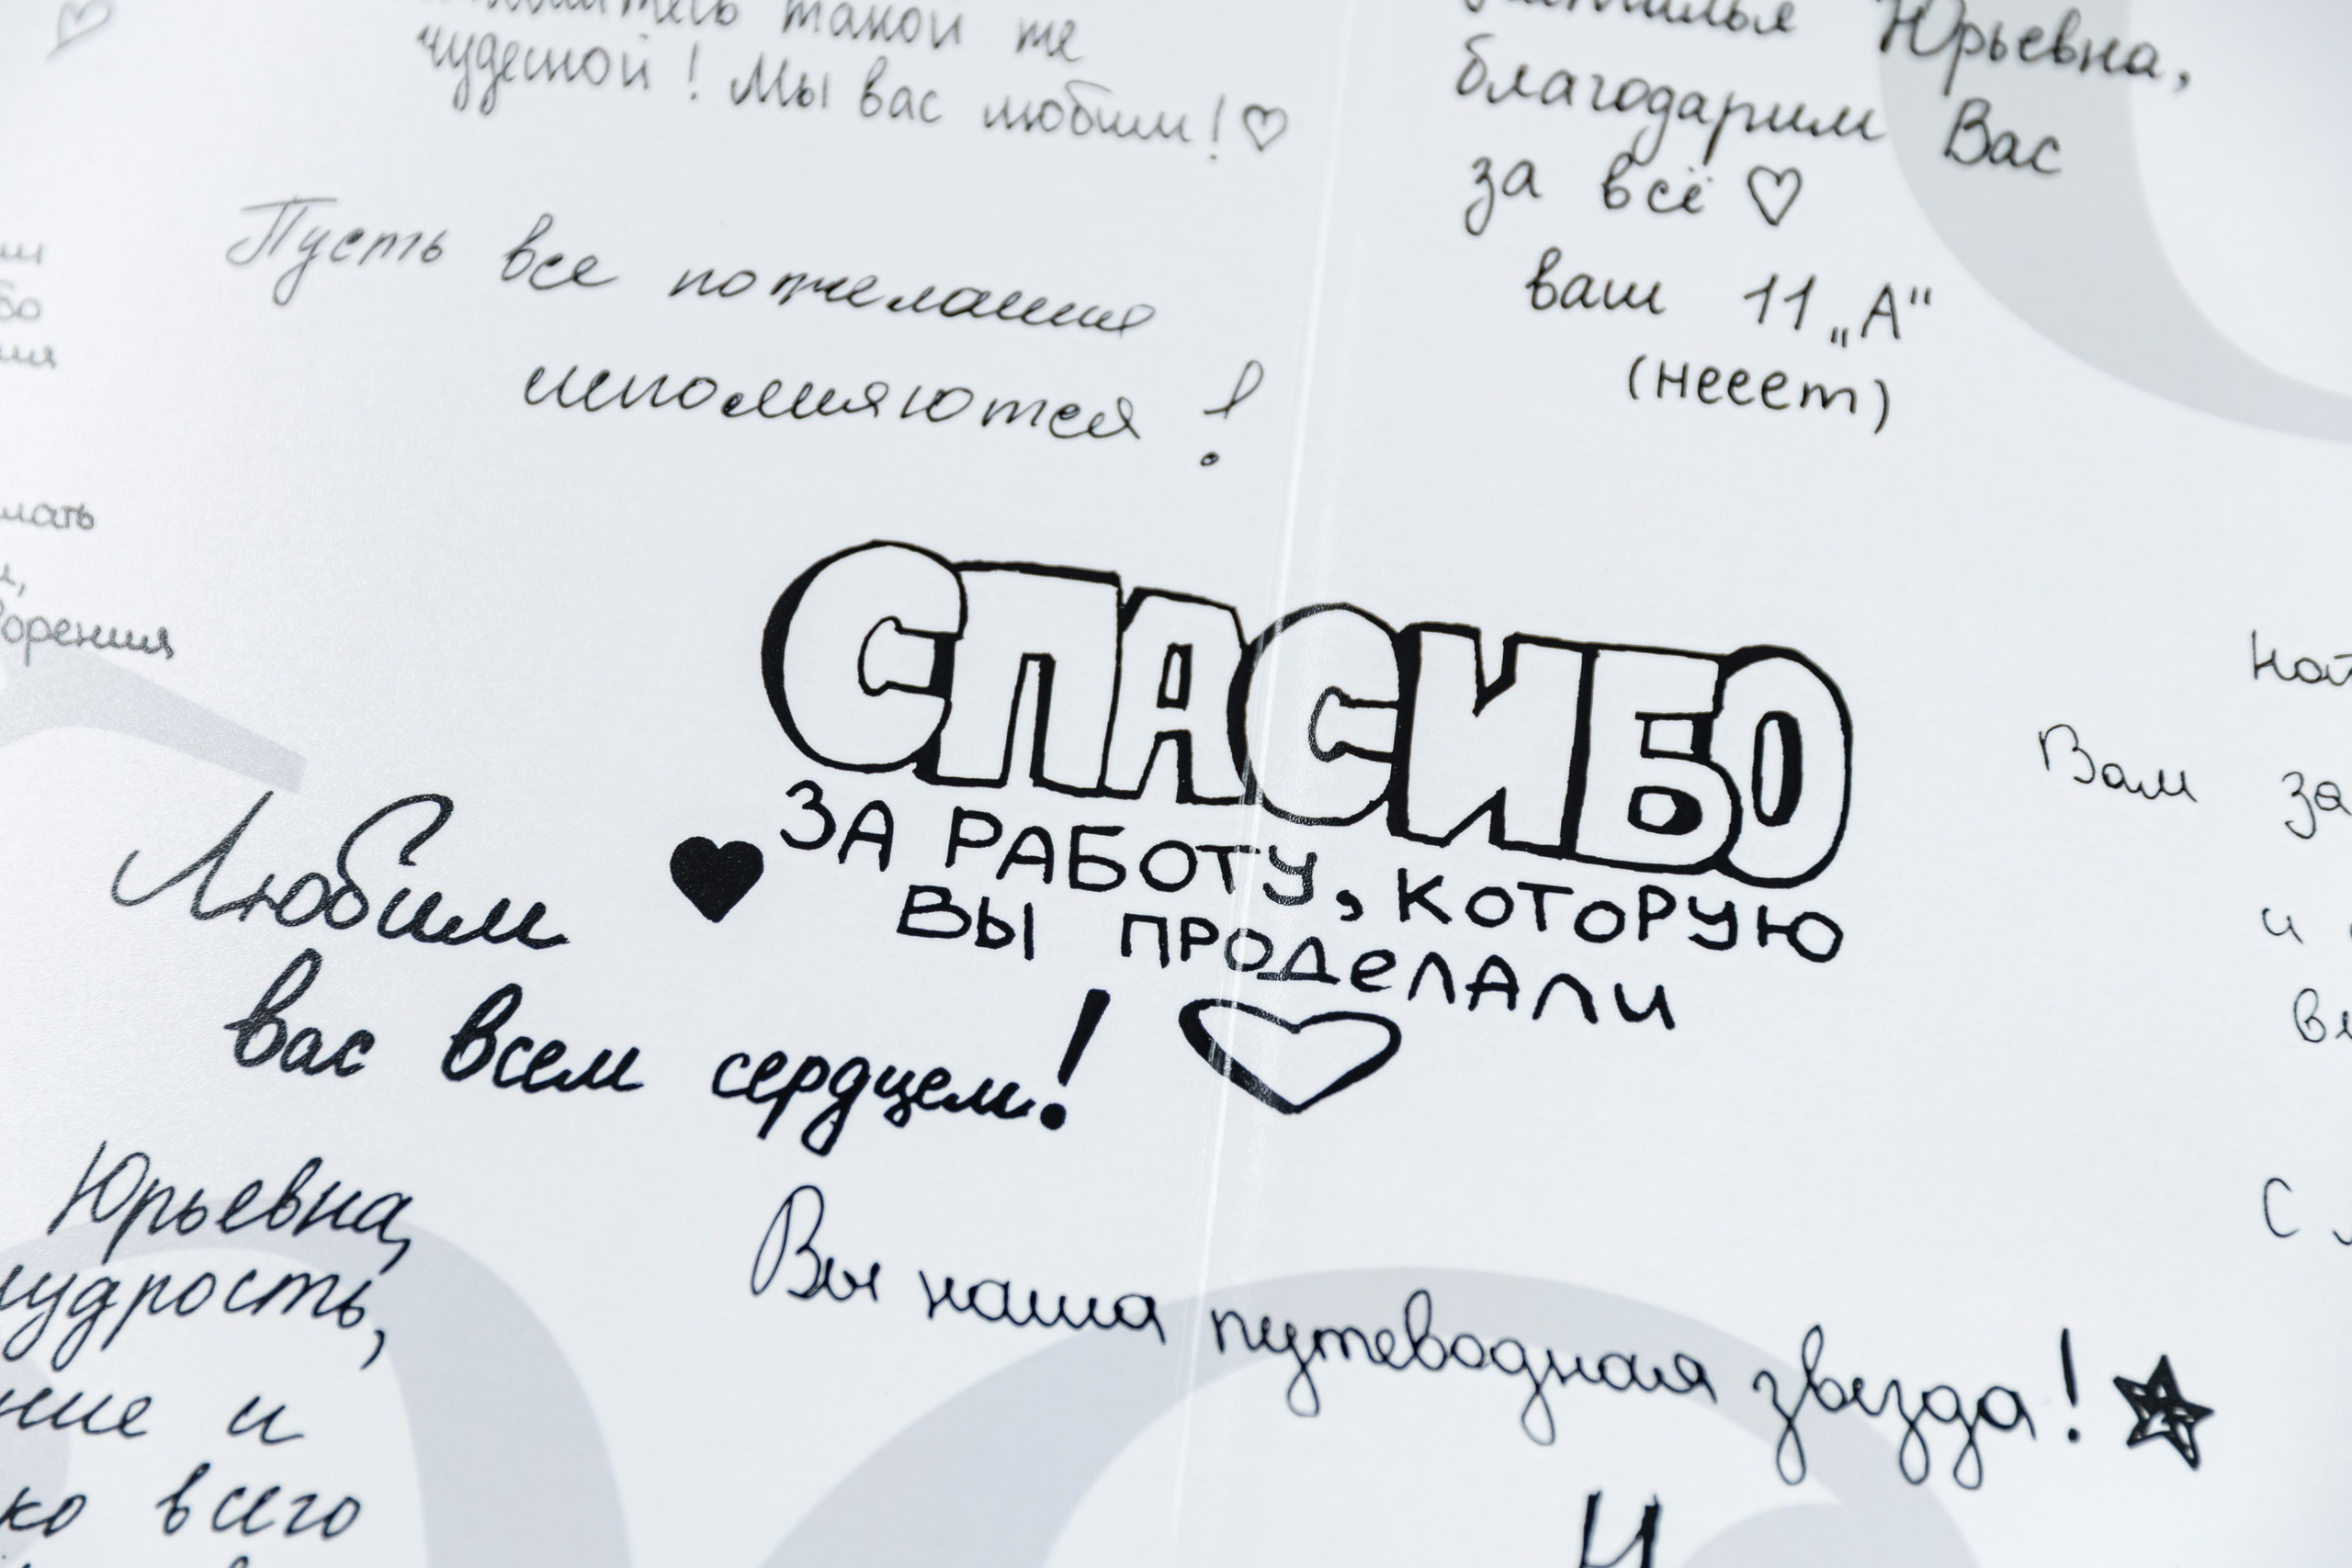 такой же
чудесной! Мы вас любим! ♡
Юрьевна,
благодарим Вас
за всё ♡
ваш 11 „А“
(нееет)
Пусть все пожелания
исполняются!
СПАСИБО
ЗА РАБОТУ, КОТОРУЮ
ВЫ ПРОДЕЛАЛИ
Любим
вас всем сердцем!
Юрьевна,
мудрость,
и
всего
Вы наша путеводная звезда!
Вам
и
С